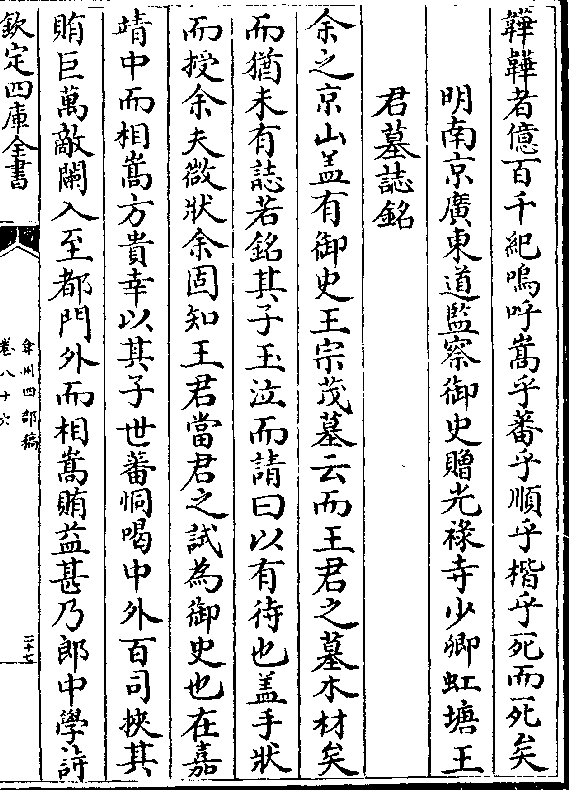 韡韡者億百千紀嗚呼嵩乎蕃乎順乎楷乎死而死矣
明南京廣東道監察御史贈光祿寺少卿虹塘王
君墓誌銘
余之京山盖有御史王宗茂墓云而王君之墓木材矣
而猶未有誌若銘其子玉泣而請曰以有待也盖手狀
而授余夫微狀余固知王君當君之試為御史也在嘉
靖中而相嵩方貴幸以其子世蕃恫喝中外百司挾其
賄巨萬敵闌入至都門外而相嵩賄益甚乃郎中學詩
欽定四庫全書
弇州四部稿
卷八十六
三十七